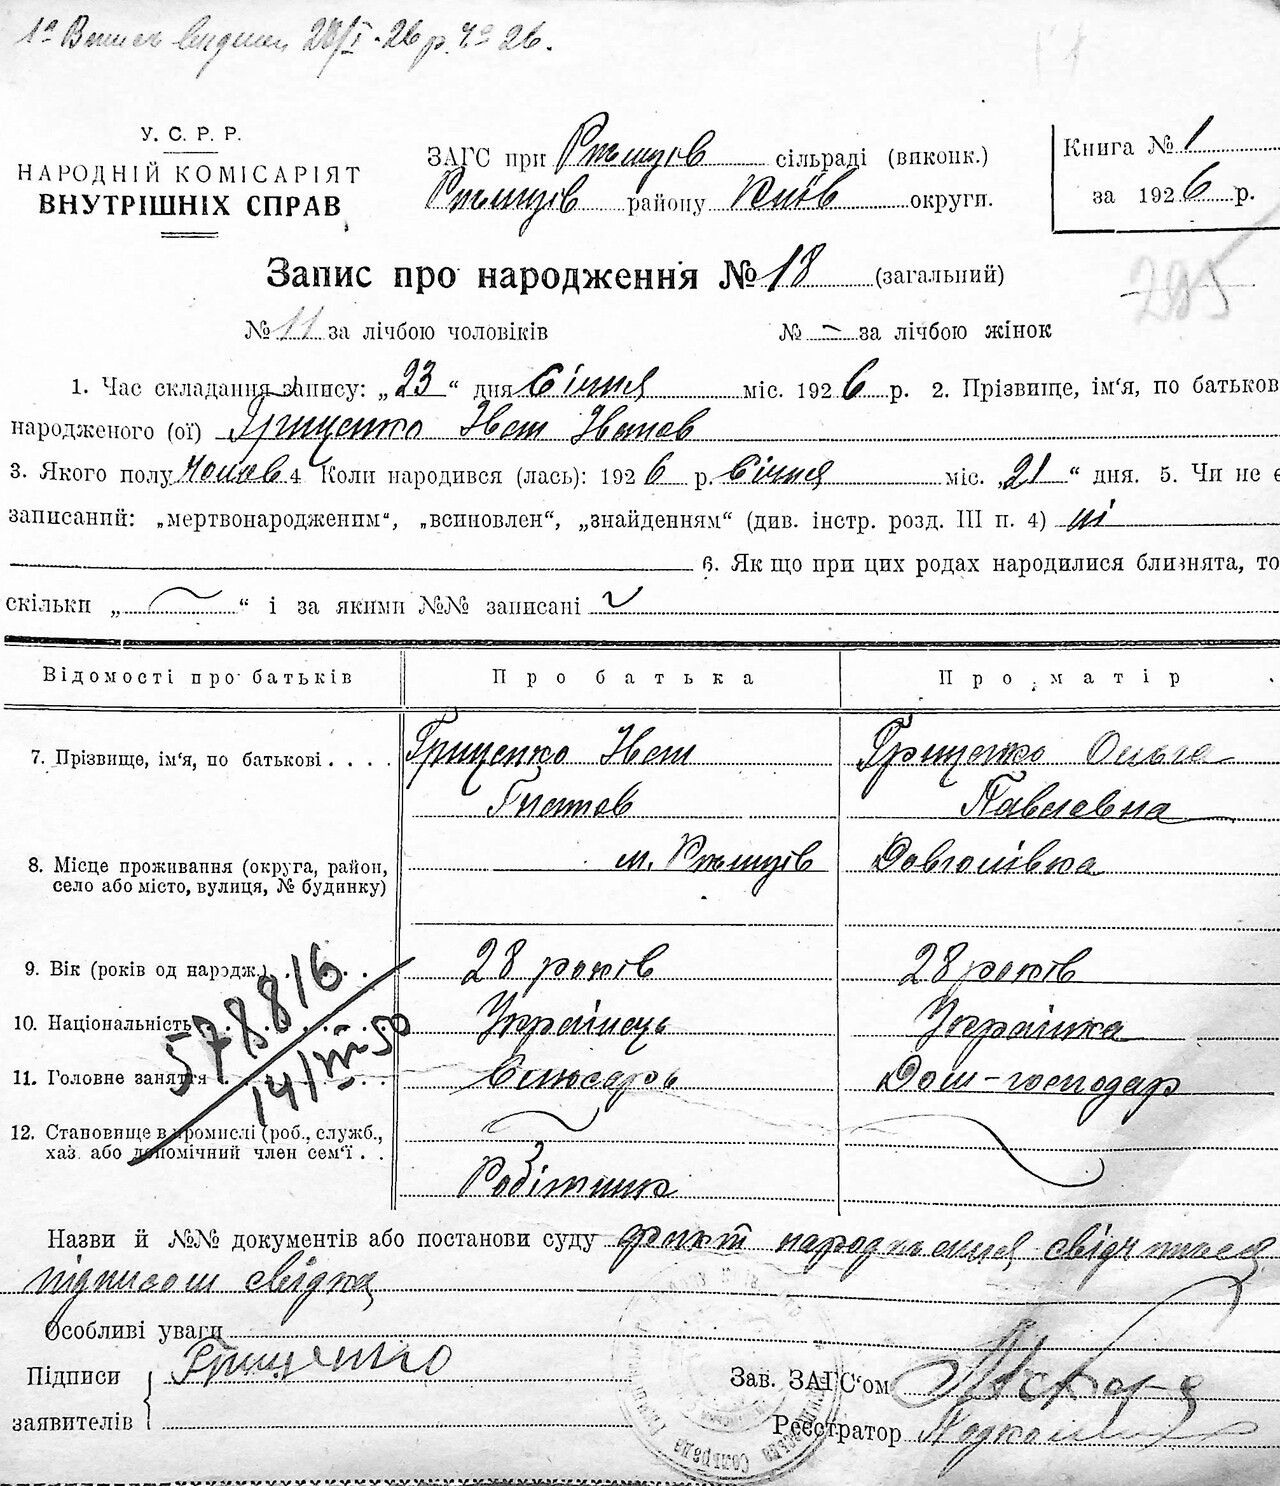 1а Випись видана 28/I-26 р. № 26.
У. С. Р. Р.
НАРОДНІЙ КОМІСАРІЯТ
ВНУТРІШНІХ СПРАВ
ЗАГС при Ржищів сільраді (виконк.)
Ржищів району Київ округи.
Книга № 1
за 1926 р.
Запис про народження № 18 (загальний)
285
№ 11 за лічбою чоловіків № – за лічбою жінок
1. Час складання запису: „23“ дня Січня міс. 1926 р. 2. Прізвище, ім‘я, по батьков
народженого (ої) Грищенко Іван Іванов
3. Якого полу чолов 4 Коли народився (лась): 1926 р. Січня міс. „21“ дня. 5. Чи не є
записаний: „мертвонародженим“, „всиновлен“, „знайденням“ (див. інстр. розд. III п. 4) ні
6. Як що при цих родах народилися близнята, то
скільки „ “ і за якими №№ записані
Відомості про батьків Про батька Про матір
7. Прізвище, ім‘я, по батькові . . . . Грищенко Іван Грищенко Ольга
Гнатов Павловна
8. Місце проживання (округа, район, м. Ржищів Довголівка
село або місто, вулиця, № будинку)
9. Вік (років од народж.) 28 років 28 років
10. Національність Українець Українка
11. Головне заняття Слюсарь Дом-господар
578816
14/III-50
12. Становище в промислі (роб., служб.,
хаз. або допомічний член сем‘ї . . Робітник
Назви й №№ документів або постанови суду факт народження свідчиться
підписом свідка
Особливі уваги
Підписи Грищенко
заявителів
Зав. ЗАГС‘ом
Реєстратор